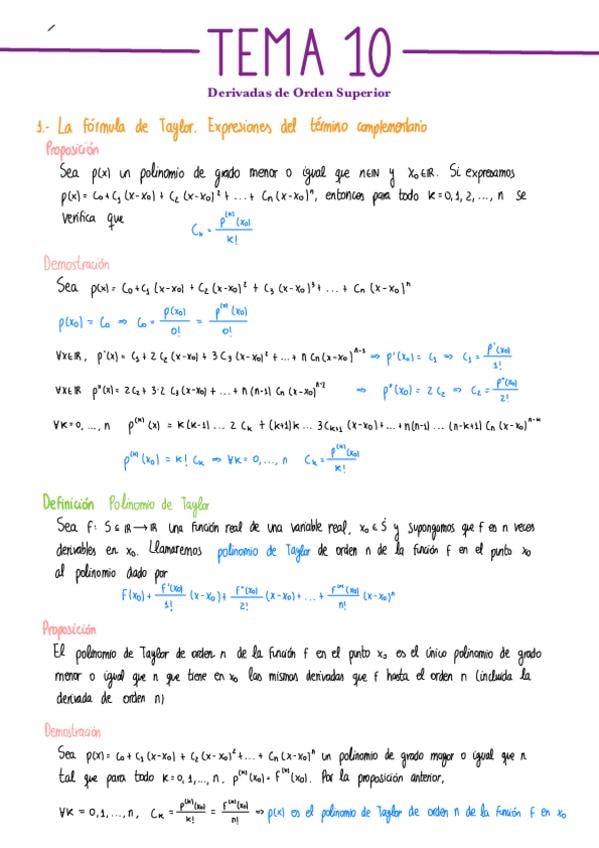 TEMA 10
Derivadas de Orden Superior
1.- La fórmula de Taylor. Expresiones del término complementario
Proposición
Sea p(x) un polinomio de grado menor o igual que n∈ℕ y x₀∈ℝ. Si expresamos
p(x) = C₀ + C₁ (x-x₀) + C₂ (x-x₀)² + ... + Cₙ (x-x₀)ⁿ, entonces para todo k = 0, 1, 2, ..., n se
verifica que Cₖ = p⁽ᵏ⁾(x₀) / k!
Demostración
Sea p(x) = C₀ + C₁ (x-x₀) + C₂ (x-x₀)² + C₃ (x-x₀)³ + ... + Cₙ (x-x₀)ⁿ
p(x₀) = C₀ ⇒ C₀ = p(x₀) / 0! = p⁽⁰⁾(x₀) / 0!
∀x∈ℝ, p'(x) = C₁ + 2 C₂ (x-x₀) + 3 C₃ (x-x₀)² + ... + n Cₙ (x-x₀)ⁿ⁻¹ ⇒ p'(x₀) = C₁ ⇒ C₁ = p'(x₀) / 1!
∀x∈ℝ p''(x) = 2C₂ + 3·2 C₃ (x-x₀) + ... + n (n-1) Cₙ (x-x₀)ⁿ⁻² ⇒ p''(x₀) = 2 C₂ ⇒ C₂ = p''(x₀) / 2!
∀k = 0, ..., n p⁽ᵏ⁾(x) = k (k-1) ... 2 Cₖ + (k+1) k ... 3Cₖ₊₁ (x-x₀) + ... + n (n-1) ... (n-k+1) Cₙ (x-x₀)ⁿ⁻ᵏ
p⁽ᵏ⁾(x₀) = k! Cₖ ⇒ ∀k = 0, ..., n Cₖ = p⁽ᵏ⁾(x₀) / k!
Definición Polinomio de Taylor
Sea f: S ⊆ ℝ → ℝ una función real de una variable real, x₀ ∈ S̊ y supongamos que f es n veces
derivables en x₀. Llamaremos polinomio de Taylor de orden n de la función f en el punto x₀
al polinomio dado por
f(x₀) + f'(x₀) / 1! (x-x₀) + f''(x₀) / 2! (x-x₀) + ... + f⁽ⁿ⁾(x₀) / n! (x-x₀)ⁿ
Proposición
El polinomio de Taylor de orden n de la función f en el punto x₀ es el único polinomio de grado
menor o igual que n que tiene en x₀ las mismas derivadas que f hasta el orden n (incluida la
derivada de orden n)
Demostración
Sea p(x) = C₀ + C₁ (x-x₀) + C₂ (x-x₀)² + ... + Cₙ (x-x₀)ⁿ un polinomio de grado mayor o igual que n
tal que para todo k = 0, 1, ..., n, p⁽ᵏ⁾(x₀) = f⁽ᵏ⁾(x₀). Por la proposición anterior,
∀k = 0, 1, ..., n, Cₖ = p⁽ᵏ⁾(x₀) / k! = f⁽ᵏ⁾(x₀) / n! ⇒ p(x) es el polinomio de Taylor de orden n de la función f en x₀